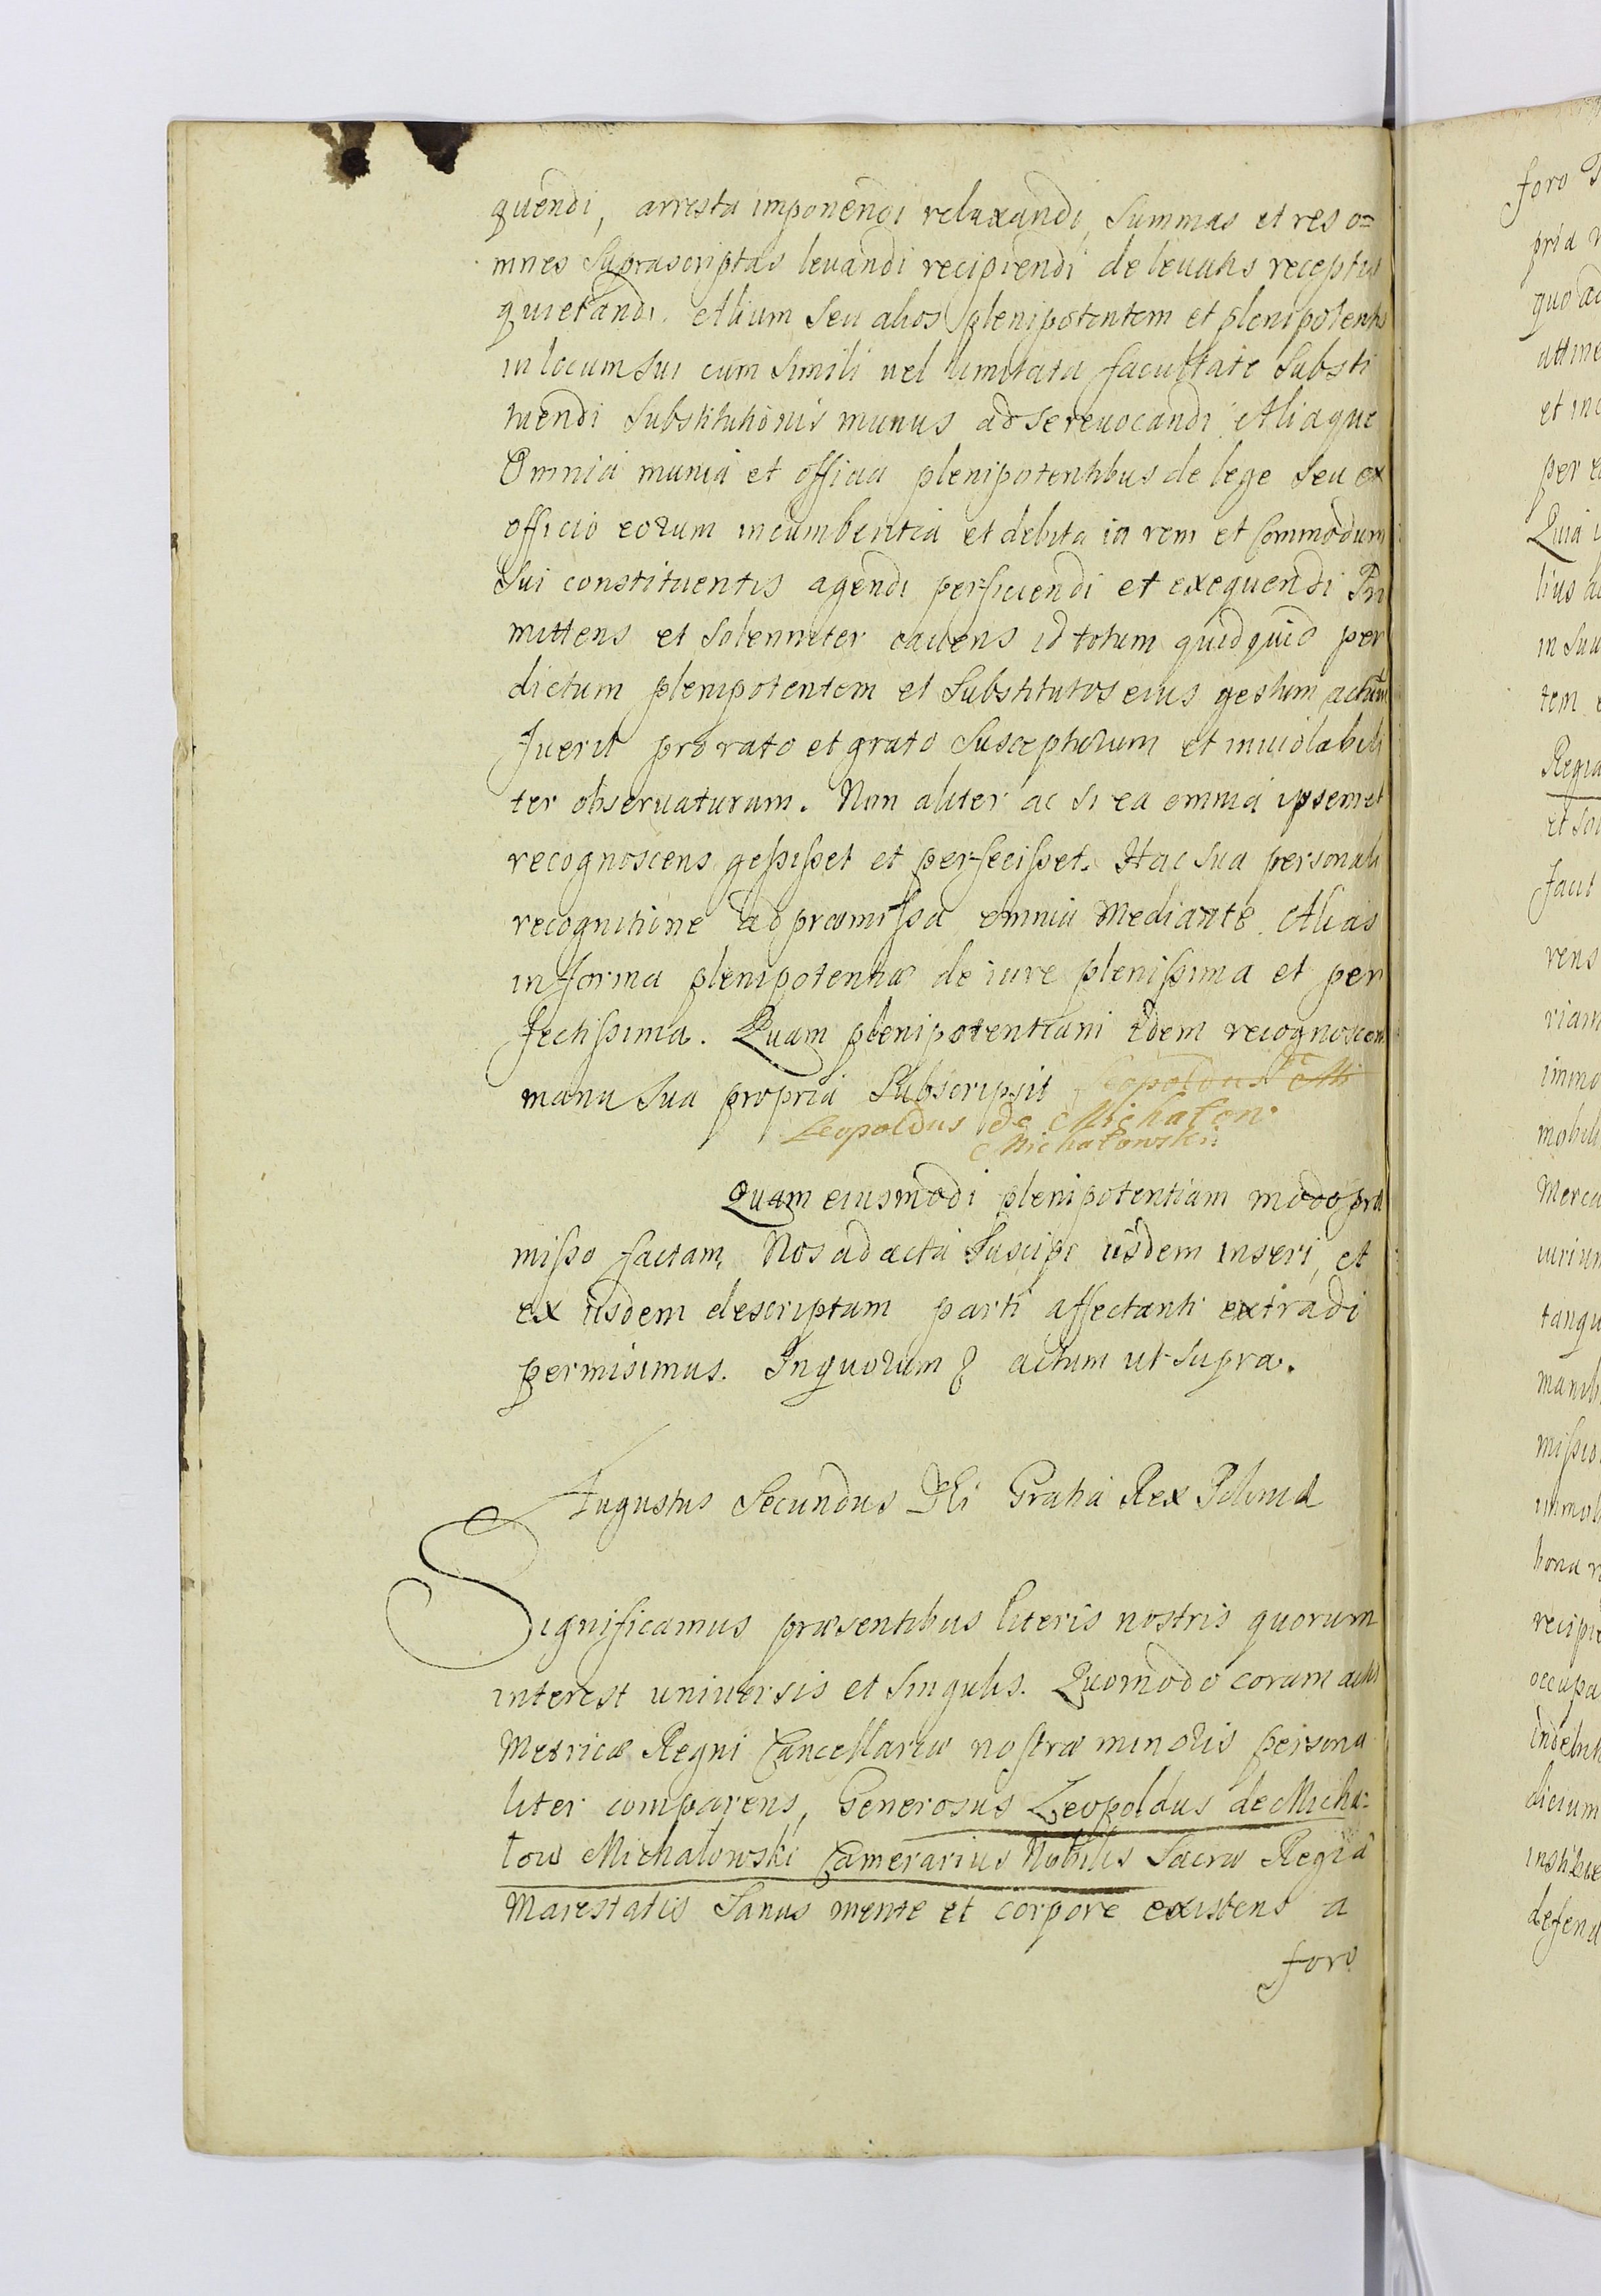 quendi, arresta imponendi relaxandi, Summas et res o=
mnes Suprascriptas levandi recipiendi de levatis receptis
quietandi. Alium Seu alios plenipotentem et plenipotentes
in locum sui cum simili vel limitata facultate Substi
tuendi Substitutionis munus ad se revocandi. Aliaque
Omnia munia et officia plenipotentibus de lege Seu ex
officio eorum incumbentia et debita in rem et Commodum
Sui constituentis agendi perficiendi et exequendi
mittens et Solenniter cavens id totum quidquid per
dictum plenipotentem et Substitutos eius gestum actum
fuerit pro rato et grato Suscepturum et inviolabili
ter observaturum. Non aliter ac si ea omnia ipsemet
recognoscens gessisset et perfecisset. Hac Sua personali
recognitione ad præmissa omnia Mediante. Alias
in forma plenipotentiæ de iure plenissima et per
fectissima. Quam plenipotentiam Idem recognoscens
manu Sua propria Subscripsit Leopoldus de Mi
Leopoldus de Michałow
Michałowski
Quam eiusmodi plenipotentiam modo præ
misso factam, Nos ad acta Suscipi iisdem inseri, et
ex iisdem descriptam parti affectanti extradi
permisimus. In quorum actum ut Supra.
Augustus Secundus DEi Gratia Rex Poloniæ
Significamus præsentibus literis nostris quorum
interest universis et Singulis. Quomodo coram actis
Metricæ Regni Cancellariæ nostræ minoris persona
liter comparens, Generosus Leopoldus de Micha=
łow Michałowski Camerarius Nobilis Sacræ Regiæ
Maiestatis Sanus mente et corpore existens a
foro
foro
quo ad
et in
per
Quia
lius
in Sua
tem
Regia
rens
riam
immo
mobili
Merca
tanqu
missio
bona
recipie
occupa
dicium